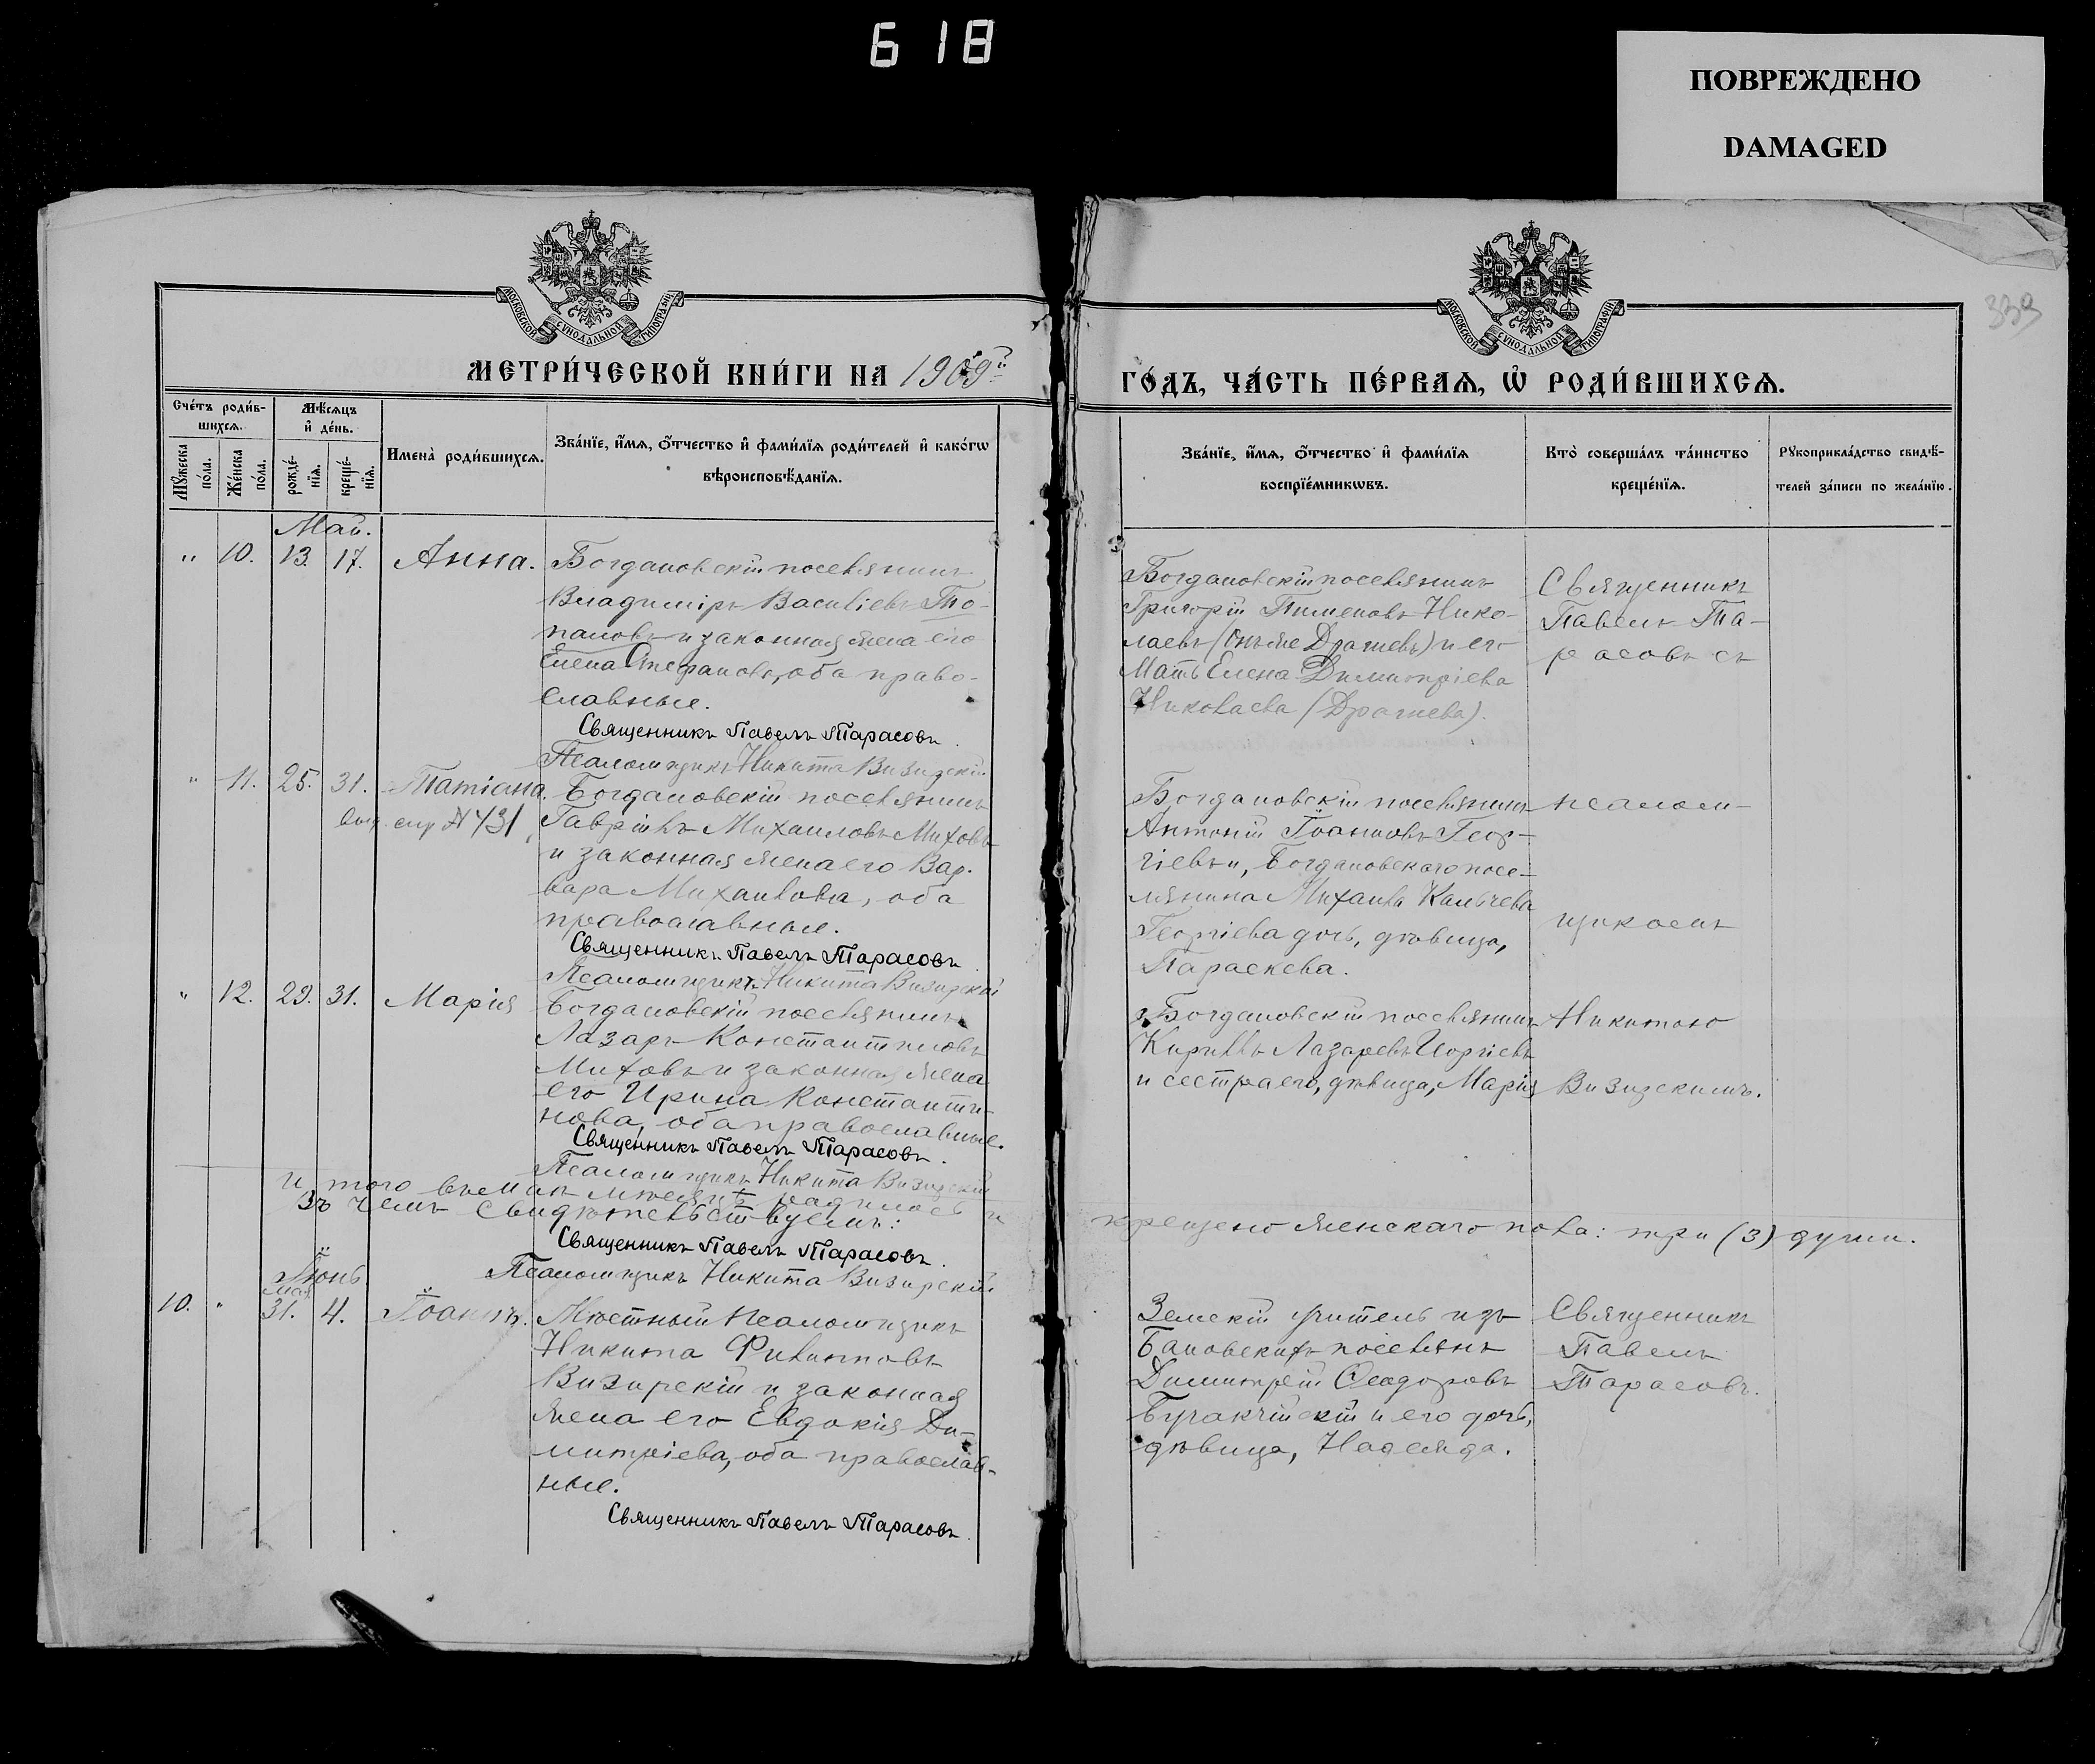 618
ПОВРЕЖДЕНО
DAMAGED
339
МОСКОВСКОЙ СѴНОДАЛЬНОЙ ТИПОГРАФІИ
МОСКОВСКОЙ СѴНОДАЛЬНОЙ ТИПОГРАФІИ
МЕТРИ́ЧЕСКОЙ КНИ́ГИ НА 1909й
ГО́ДЪ, ЧА́СТЬ ПЕ́РВАѦ, Ѡ҆ РОДИ́ВШИХСѦ.
Сче́тъ роди́в-
шихсѧ.
Мꙋ́жеска по́ла.
Же́нска по́ла.
Мѣ́сѧцъ
и҆ де́нь.
рожде́-
нїѧ.
креще́-
нїѧ.
Имена̀ роди́вшихсѧ.
Зва́нїе, и҆́мѧ, ѻ҆́тчество и҆ фами́лїѧ роди́телей и҆ како́гѡ
вѣ́роисповѣ́данїѧ.
Зва́нїе, и҆́мѧ, ѻ҆́тчество и҆ фами́лїѧ
воспрїе́мникѡвъ.
Кто̀ соверша́лъ та́инство
креще́нїѧ.
Рꙋкоприкла́дство свидѣ́-
телей за́писи по жела́нїю.
Май.
„ 10. 13. 17. Анна.
Богдановскій поселянинъ
Владиміръ Васильевъ То-
паловъ и законная жена его
Елена Стефанова, оба право-
славные.
Священникъ Павелъ Тарасовъ.
Псаломщикъ Никита Визирскій
Богдановскій поселянинъ
Григорій Пименовъ Нико-
лаевъ (онъ же Драгневъ) и его
Мать Елена Димитріева
Николаева (Драгнева).
Священникъ
Павелъ Та-
расовъ съ
„ 11. 25. 31. Татіана.
выд. спр № 431
Богдановскій поселянинъ
Гавріилъ Михаиловъ Миховъ
и законная жена его Вар-
вара Михаилова, оба
православные.
Священникъ Павелъ Тарасовъ
Псаломщикъ Никита Визирскій
Богдановскій поселянинъ
Антоній Іоанновъ Геор-
гіевъ и, Богдановскаго посе-
лянина Михаила Кальчева
Георгіева дочь, дѣвица,
Параскева.
псалом-
щикомъ
„ 12. 29. 31. Марія
Богдановскій поселянинъ
Лазаръ Константиновъ
Миховъ и законная жена
его Ирина Константи-
нова, оба православные.
Священникъ Павелъ Тарасовъ.
Псаломщикъ Никита Визирскій
Богдановскій поселянинъ
Кириллъ Лазаревъ Георгіевъ
и сестра его, дѣвица, Марія
Никитою
Визирскимъ.
Итого въ маѣ мѣсяцѣ родилось и
крещено женскаго пола: три (3) души.
Въ чемъ свидѣтельствуемъ:
Священникъ Павелъ Тарасовъ.
Псаломщикъ Никита Визирскій
Іюнь
Мая
10. „ 31. 4. Іоаннъ.
Мѣстный псаломщикъ
Никита Филипповъ
Визирскій и законная
жена его Евдокія Ди-
митріева, оба православ-
ные.
Священникъ Павелъ Тарасовъ.
Земскій учитель изъ
Бановскихъ поселянъ
Димитрій Ѳеодоровъ
и его дочь,
дѣвица, Надежда.
Священникъ
Павелъ
Тарасовъ.